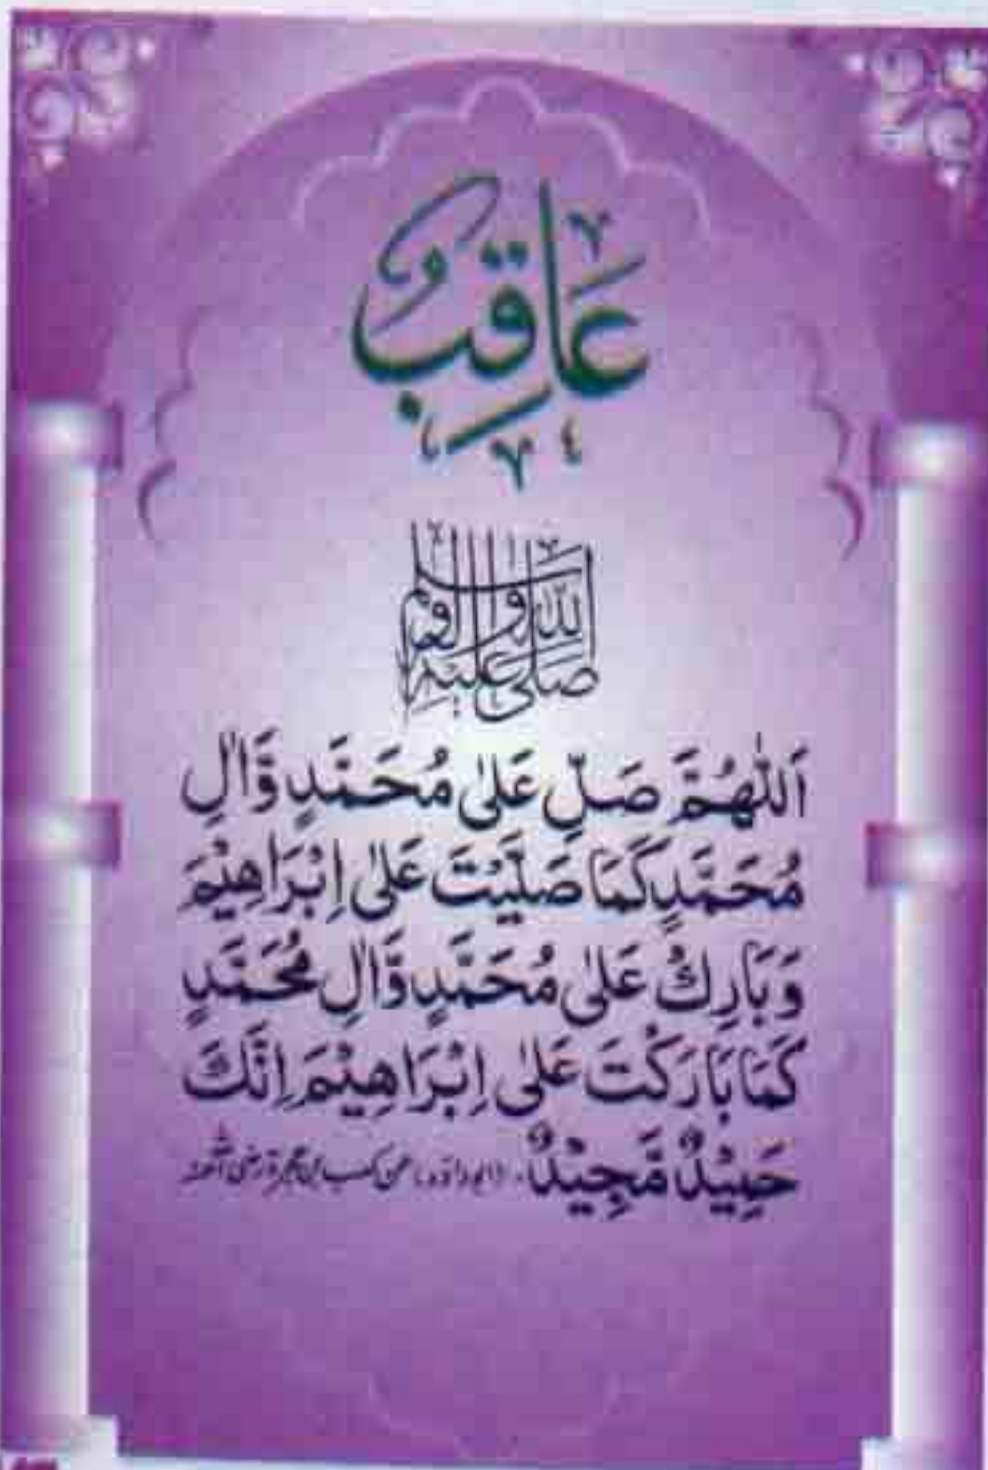 عَاقِبٌ
صلى الله عليه وآله وسلم
اَللّٰهُمَّ صَلِّ عَلٰى مُحَمَّدٍ وَّاٰلِ
مُحَمَّدٍ كَمَا صَلَّيْتَ عَلٰى اِبْرَاهِيْمَ
وَبَارِكْ عَلٰى مُحَمَّدٍ وَّاٰلِ مُحَمَّدٍ
كَمَا بَارَكْتَ عَلٰى اِبْرَاهِيْمَ اِنَّكَ
حَمِيْدٌ مَّجِيْدٌ. (ابوداؤد، عن کعب ابن عجرۃ رضی اللہ عنہ